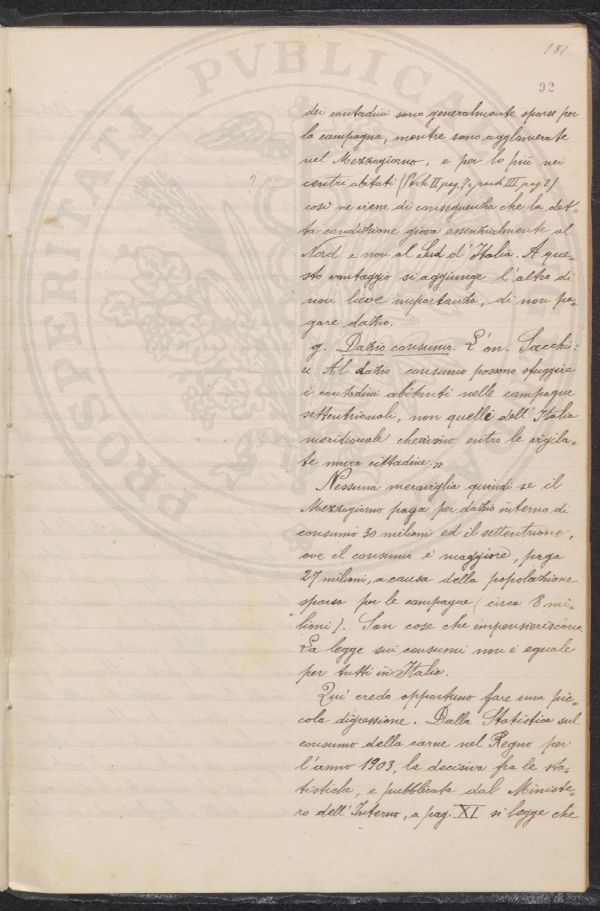 181
92
dei contadini sono generalmente sparse per
la campagna, mentre sono agglomerate
nel Mezzogiorno, e per lo più nei
centri abitati (Parte II pag. 7 e parte III pag. 2)
così ne viene di conseguenza che la det=
ta condizione giova essenzialmente al
Nord e non al Sud d'Italia. A que=
sto vantaggio si aggiunge l'altro di
non lieve importanza, di non pa=
gare dazio.
g. Dazio consumo. L'on. Sacchi:
« Al dazio consumo possono sfuggire
i contadini abitanti nelle campagne
settentrionali, non quelli dell'Italia
meridionale entro le vigila=
te mura cittadine.»
Nessuna meraviglia quindi se il
Mezzogiorno paga per dazio interno di
consumo 30 milioni ed il settentrione,
ove il consumo è maggiore, paga
27 milioni, a causa della popolazione
sparsa per le campagne (circa 8 mi=
lioni). Son cose che impensieriscono.
La legge sui consumi non è eguale
per tutti in Italia.
Qui credo opportuno fare una pic=
cola digressione. Dalla Statistica sul
consumo della carne nel Regno per
l'anno 1903, la decisiva fra le sta=
tistiche, e pubblicata dal Ministe=
ro dell'Interno, a pag. XI si legge che
PROSPERITATI PVBLICAE